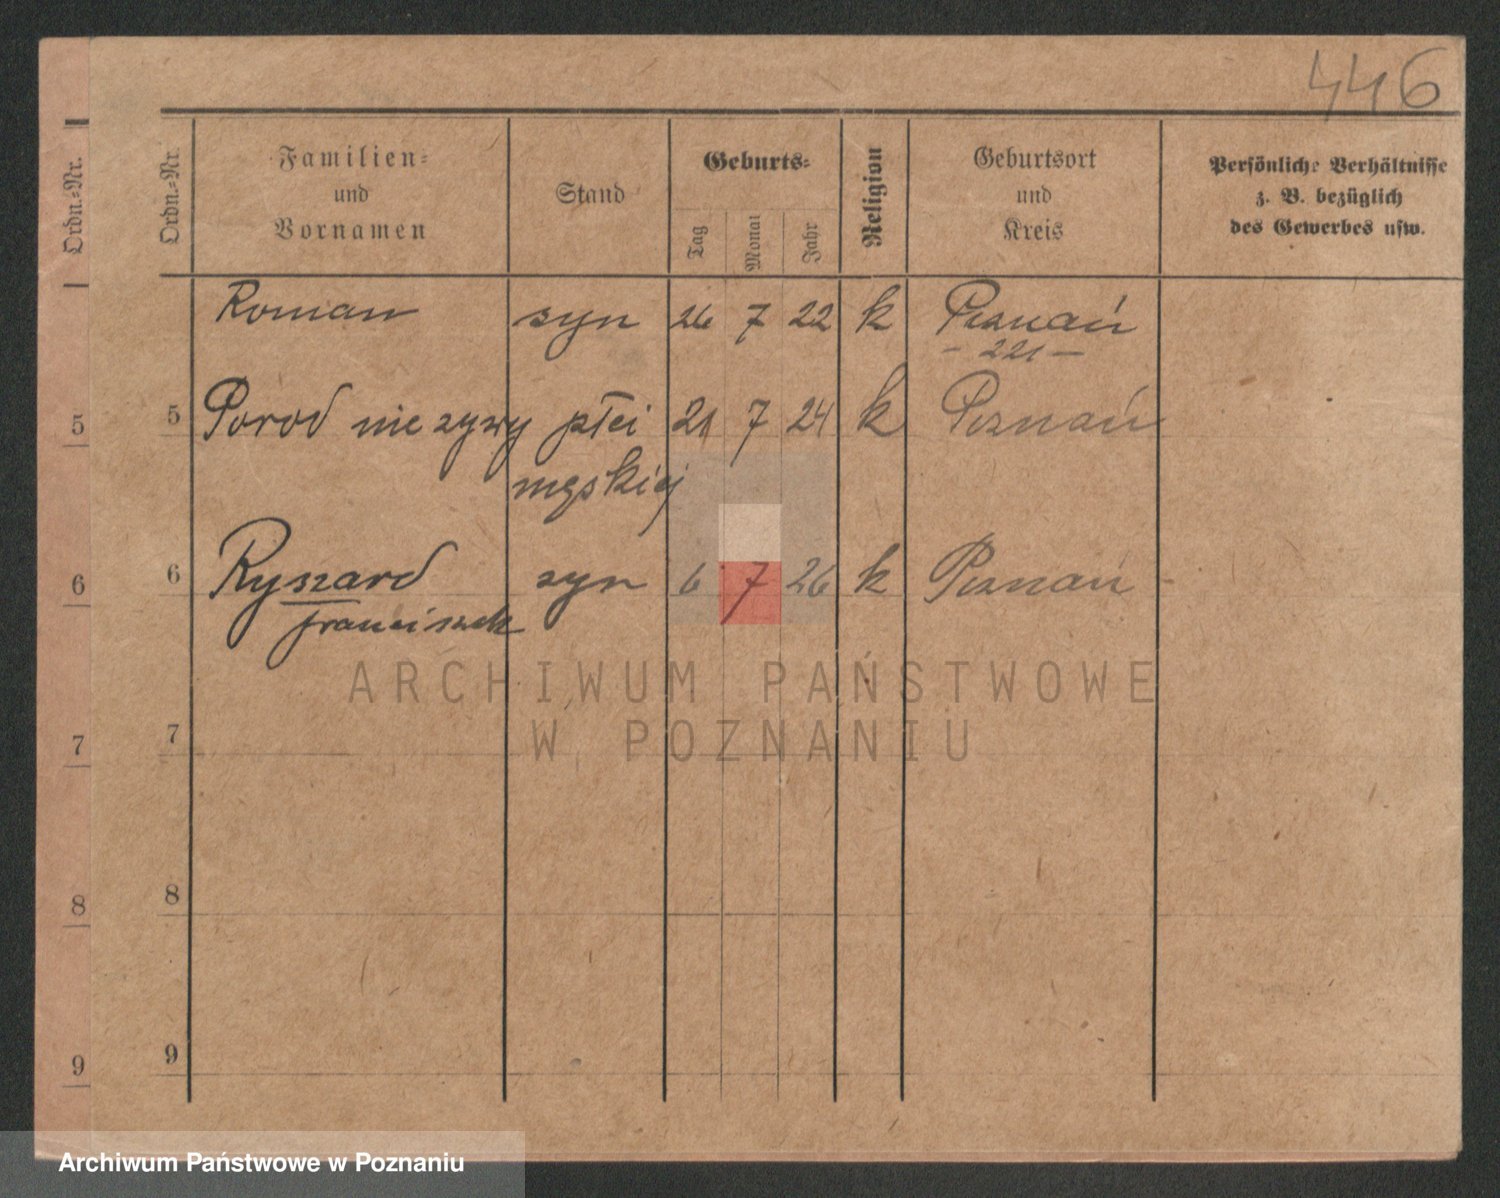 446
Ordn.=Nr.
Ordn.=Nr.
Familien=
und
Vornamen
Stand
Geburts=
Tag
Monat
Jahr
Religion
Geburtsort
und
Kreis
Persönliche Verhältnisse
z. B. bezüglich
des Gewerbes usw.
Roman syn 26 7 22 k Poznań
- 221 -
5 5 Porod nie zywy płci 21 7 24 k Poznań
męskiej
6 6 Ryszard syn 6 7 26 k Poznań
franciszek
ARCHIWUM PAŃSTWOWE
W POZNANIU
7 7
8 8
9 9
Archiwum Państwowe w Poznaniu